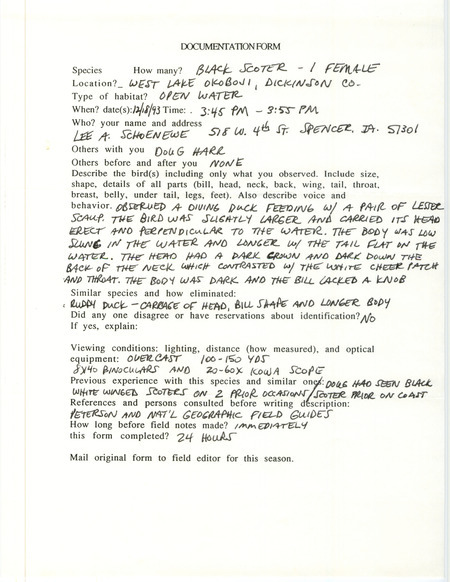 DOCUMENTATION FORM
Species How many? BLACK SCOTER - 1 FEMALE
Location? WEST LAKE OKOBOJI, DICKINSON CO.
Type of habitat? OPEN WATER
When? date(s): 12/18/93 Time: . 3:45 PM - 3:55 PM
Who? your name and address
LEE A. SCHOENEWE 518 W. 4th ST. SPENCER, IA. 51301
Others with you DOUG HARR
Others before and after you NONE
Describe the bird(s) including only what you observed. Include size,
shape, details of all parts (bill, head, neck, back, wing, tail, throat,
breast, belly, under tail, legs, feet). Also describe voice and
behavior. OBSERVED A DIVING DUCK FEEDING W/ A PAIR OF LESSER
SCAUP. THE BIRD WAS SLIGHTLY LARGER AND CARRIED ITS HEAD
ERECT AND PERPENDICULAR TO THE WATER. THE BODY WAS LOW
SLUNG IN THE WATER AND LONGER W/ THE TAIL FLAT ON THE
WATER. THE HEAD HAD A DARK CROWN AND DARK DOWN THE
BACK OF THE NECK WHICH CONTRASTED W/ THE WHITE CHEEK PATCH
AND THROAT. THE BODY WAS DARK AND THE BILL LACKED A KNOB
Similar species and how eliminated:
RUDDY DUCK - CARRIAGE OF HEAD, BILL SHAPE AND LONGER BODY
Did any one disagree or have reservations about identification? NO
If yes, explain:
Viewing conditions: lighting, distance (how measured), and optical
equipment: OVERCAST 100-150 YDS
8X40 BINOCULARS AND 20-60X KOWA SCOPE
Previous experience with this species and similar ones: DOUG HAD SEEN BLACK
WHITE WINGED SCOTERS ON 2 PRIOR OCCASIONS / SCOTER PRIOR ON COAST
References and persons consulted before writing description:
PETERSON AND NAT'L GEOGRAPHIC FIELD GUIDES
How long before field notes made? IMMEDIATELY
this form completed? 24 HOURS
Mail original form to field editor for this season.